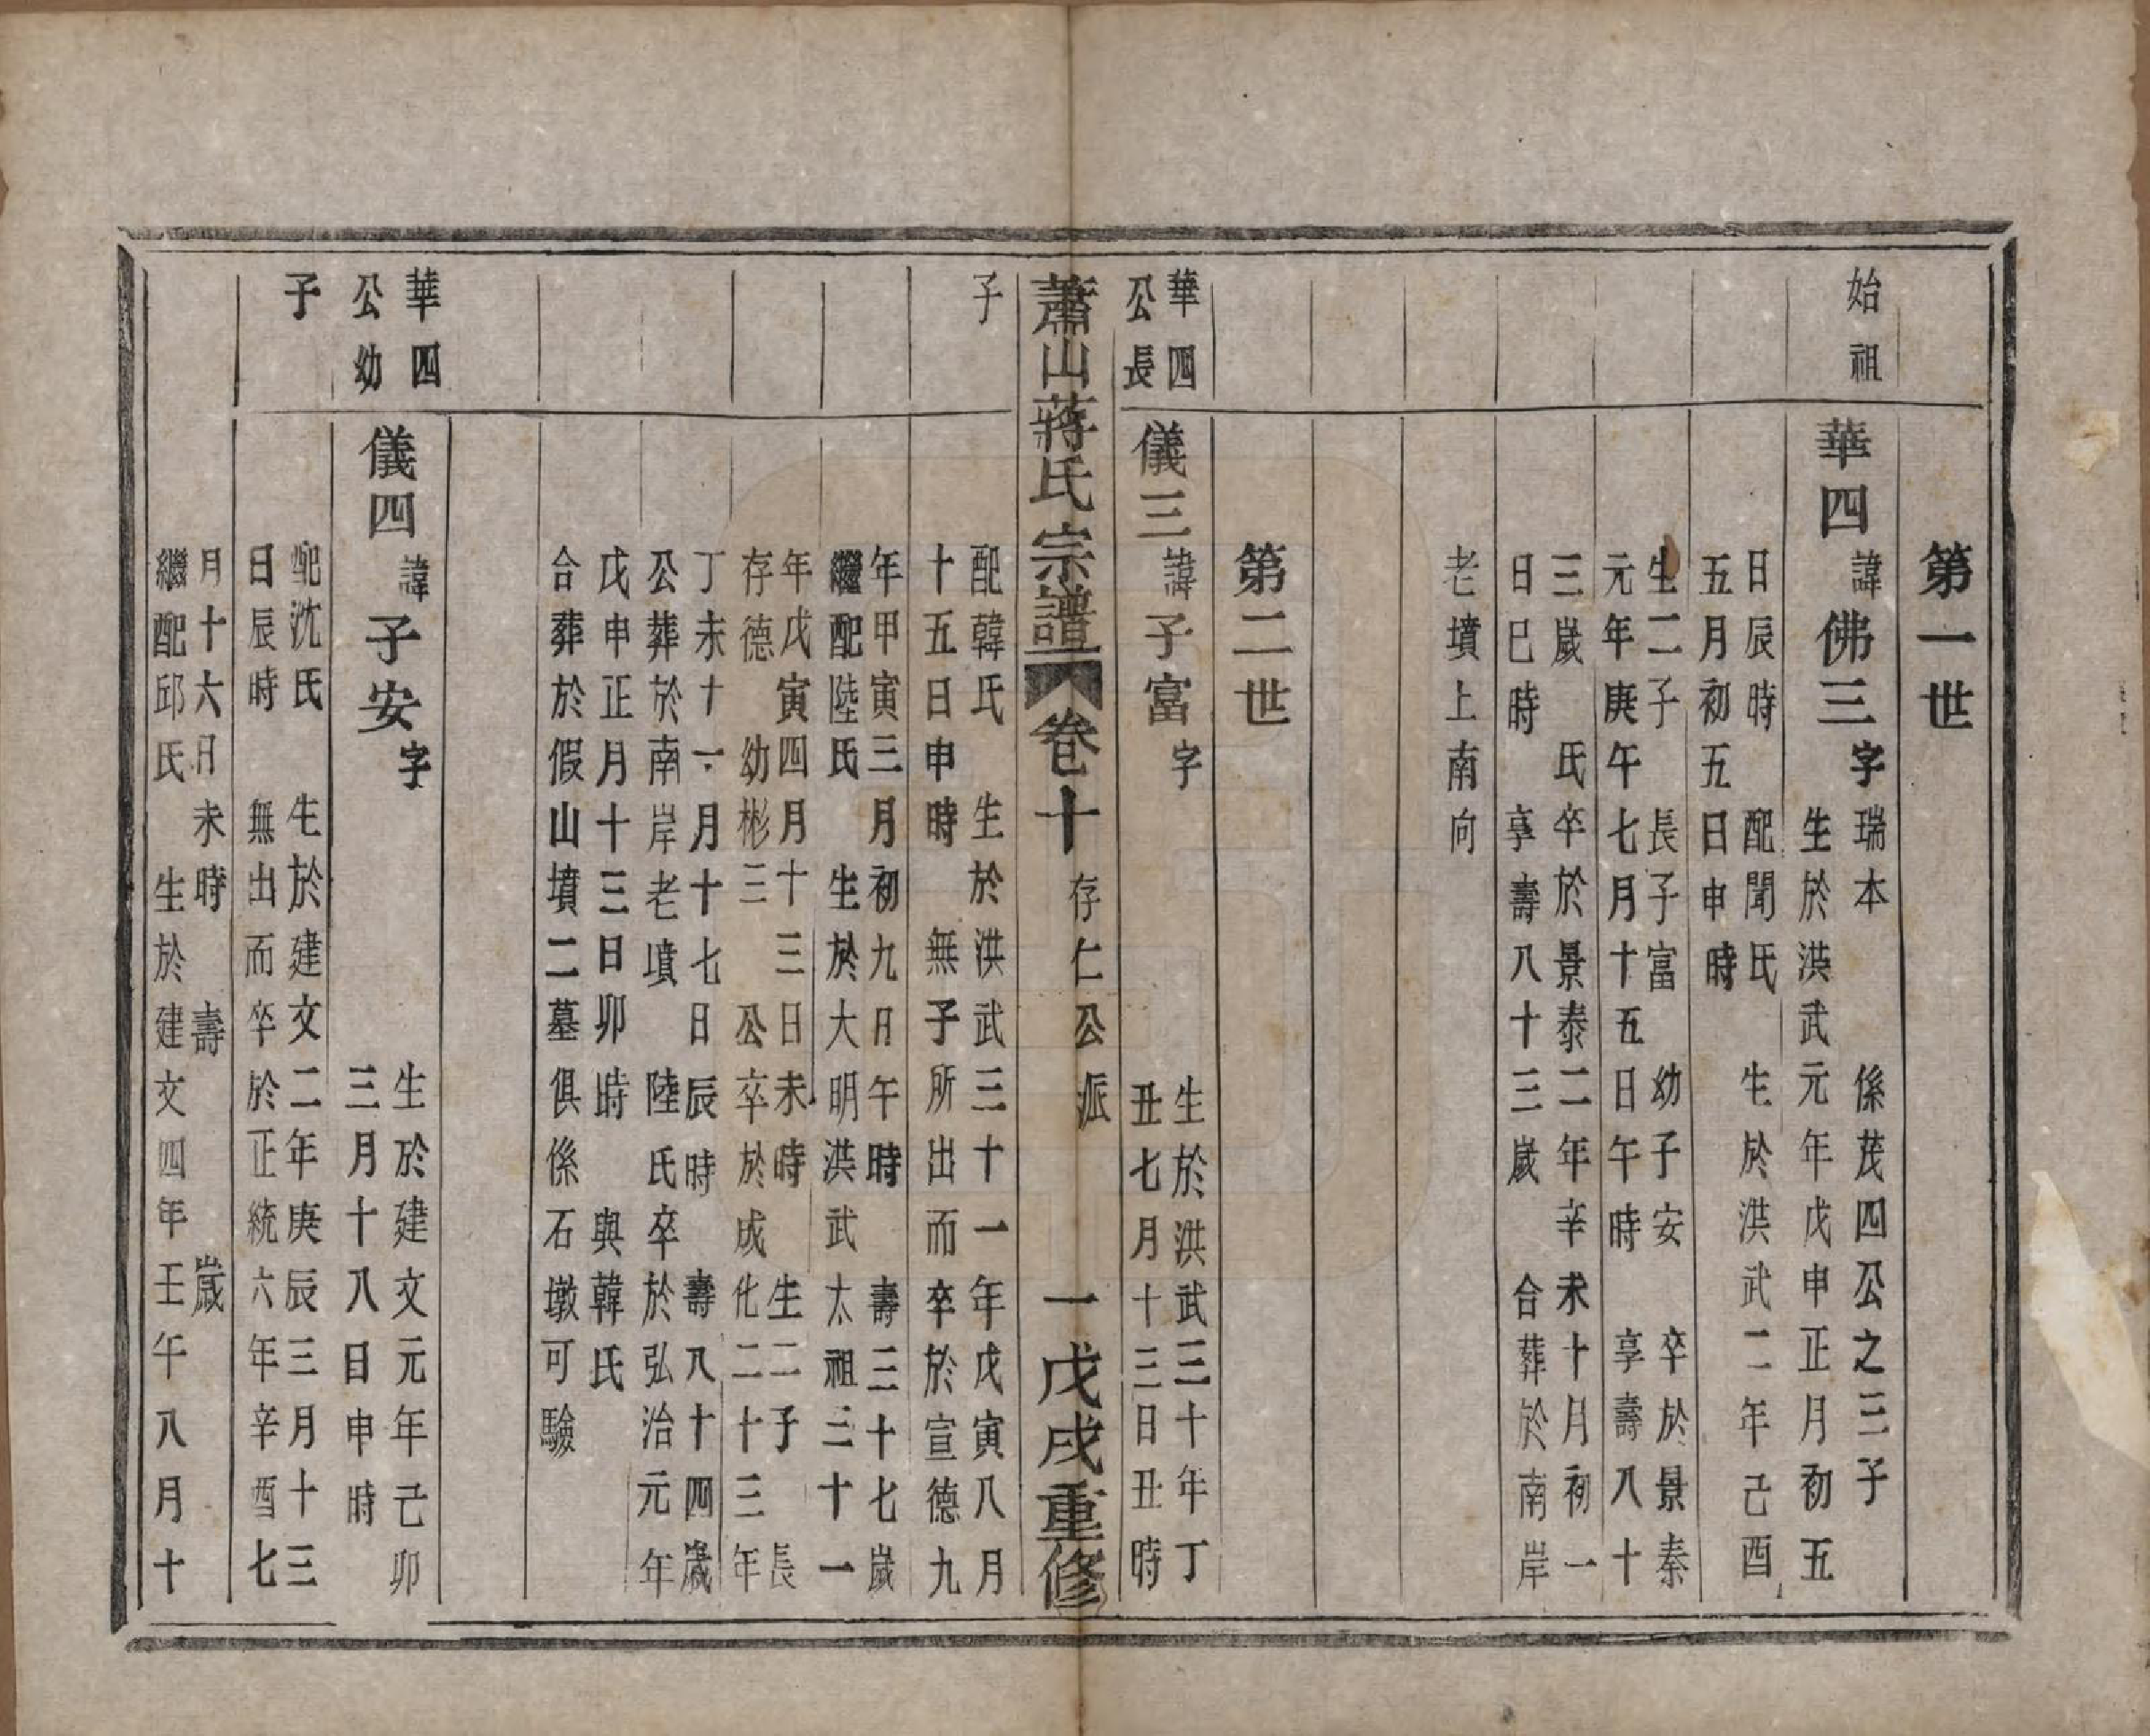 第一世
始祖
華四 諱佛三 字瑞本 係茂四公之三子
生於洪武元年戊申正月初五
日辰時 配聞氏 生於洪武二年己酉
五月初五日申時
生二子 長子富 幼子安 卒於景泰
元年庚午七月十五日午時 享壽八十
三歲 氏卒於景泰二年辛未十月初一
日巳時 享壽八十三歲 合葬於南岸
老墳上南向
第二世
華四
公長
儀三 諱子富 字 生於洪武三十年丁
丑七月十三日丑時
蕭山蔣氏宗譜 卷十 存仁公派 一 戊戌重修
子
配韓氏 生於洪武三十一年戊寅八月
十五日申時 無子所出而卒於宣德九
年甲寅三月初九日午時 壽三十七歲
繼配陸氏 生於大明洪武太祖三十一
年戊寅四月十三日未時 生二子 長
存德 幼彬三 公卒於成化二十三年
丁未十一月十七日辰時 壽八十四歲
公葬於南岸老墳 陸氏卒於弘治元年
戊申正月十三日卯時 與韓氏
合葬於假山墳二墓俱係石墩可驗
華四
公幼
子
儀四 諱子安 字 生於建文元年己卯
三月十八日申時
配沈氏 生於建文二年庚辰三月十三
日辰時 無出而卒於正統六年辛酉七
月十六日未時 壽 歲
繼配邱氏 生於建文四年壬午八月十